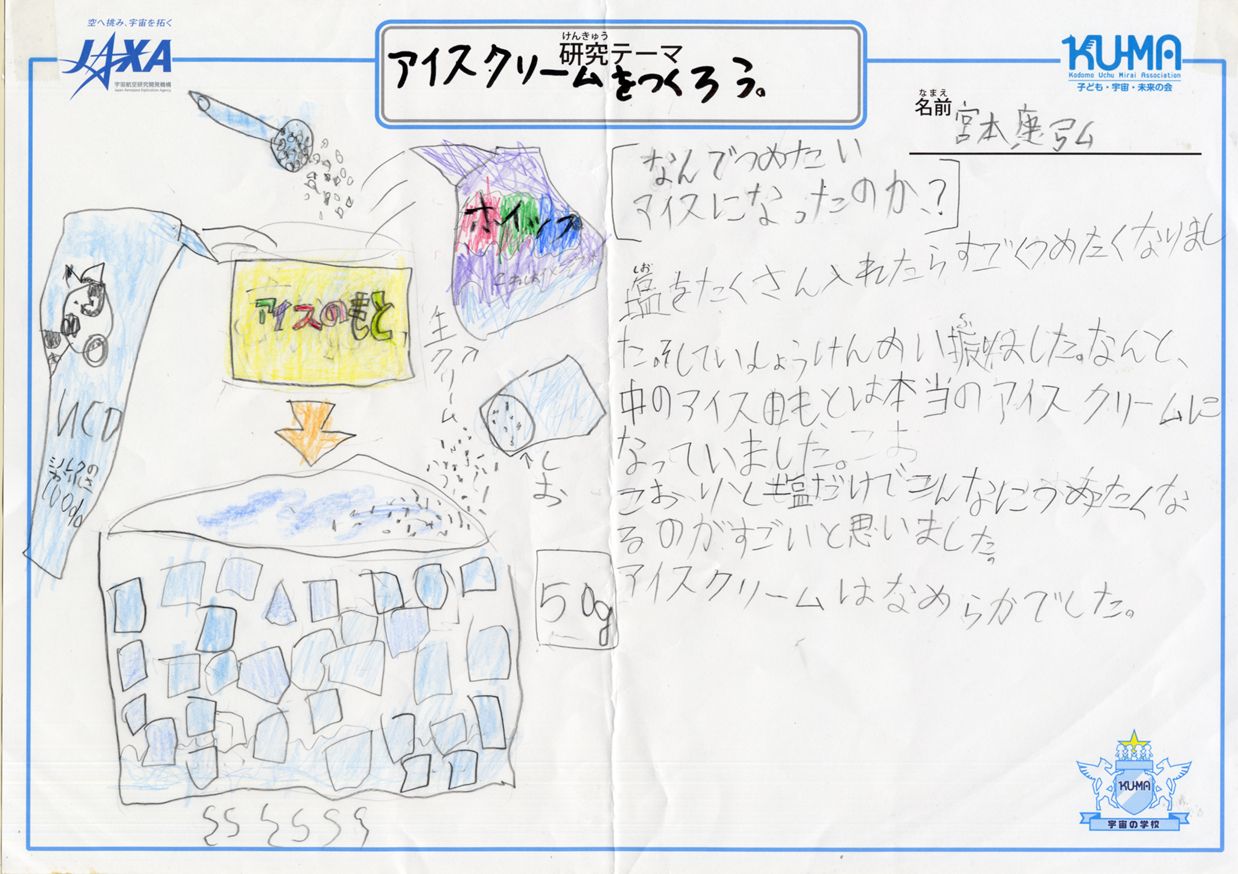 空へ挑み、宇宙を拓く
JAXA
宇宙航空研究開発機構
Japan Aerospace Exploration Agency
けんきゅう
研究テーマ
アイスクリームをつくろう。
KU-MA
Kodomo Uchu Mirai Association
子ども・宇宙・未来の会
なまえ
名前
宮本
なんでつめたい
アイスになったのか?
しお
塩をたくさん入れたらすごくつめたくなりまし
た。そしていっしょうけんめい振りました。なんと、
中のアイスのもとは本当のアイスクリームに
なっていました。こお
こおりと塩だけでこんなにつめたくな
るのがすごいと思いました。
アイスクリームはなめらかでした。
ホイップ
アイスのもと
生クリーム
しお
50g
KU-MA
宇宙の学校